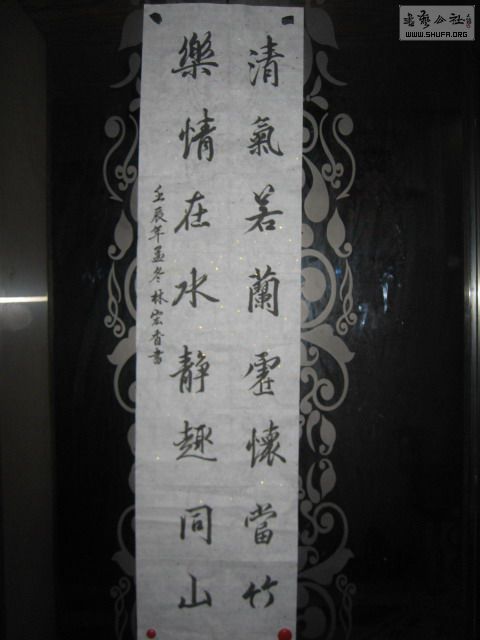 清氣若蘭虛懷當竹
樂情在水静趣同山
壬辰年孟冬林宏香書
書藝公社
WWW.SHUFA.ORG